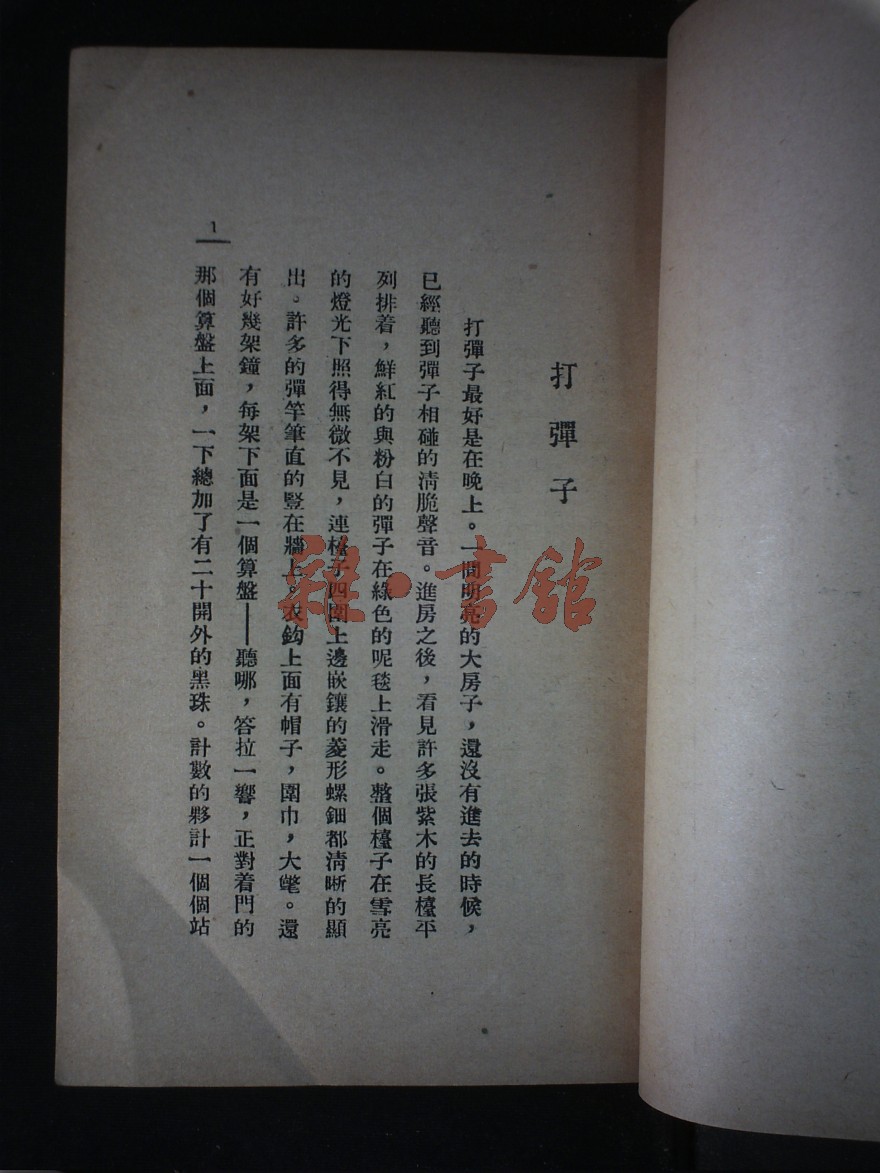 打彈子
打彈子最好是在晚上。一間明亮的大房子，還沒有進去的時候，
已經聽到彈子相碰的清脆聲音。進房之後，看見許多張紫木的長檯平
列排着，鮮紅的與粉白的彈子在綠色的呢毯上滑走。整個檯子在雪亮
的燈光下照得無微不見，連檯子四圍上邊嵌鑲的菱形螺鈿都清晰的顯
出。許多的彈竿筆直的豎在牆上。衣鈎上面有帽子，圍巾，大氅。還
有好幾架鐘，每架下面是一個算盤——聽哪，答拉一響，正對着門的
那個算盤上面，一下總加了有二十開外的黑珠。計數的夥計一個個站
1
雜·書館